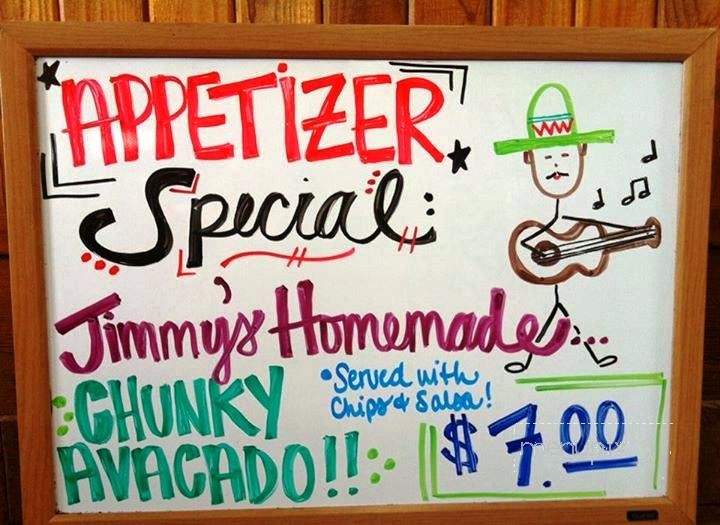 APPETIZER
Special:
Jimmy's Homemade...
CHUNKY
AVACADO!!
•Served with
Chips & Salsa!
$7.00